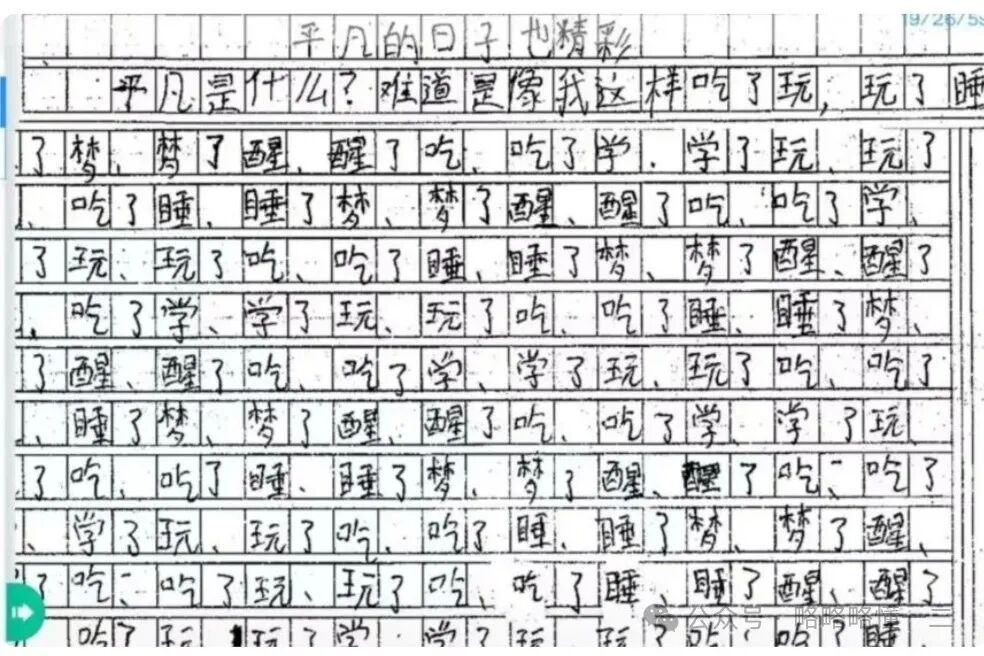 19/26/59
平凡的日子也精彩
平凡是什么?难道是像我这样吃了玩,玩了睡
了梦、梦了醒、醒了吃、吃了学、学了玩、玩了
、吃了睡、睡了梦、梦了醒、醒了吃、吃了学、
了玩、玩了吃、吃了睡、睡了梦、梦了醒、醒了
、吃了学、学了玩、玩了吃、吃了睡、睡了梦、
了醒、醒了吃、吃了学、学了玩、玩了吃、吃了
、睡了梦、梦了醒、醒了吃、吃了学、学了玩、
了吃、吃了睡、睡了梦、梦了醒、醒了吃、吃了
、学了玩、玩了吃、吃了睡、睡了梦、梦了醒、
了吃、吃了玩、玩了吃、吃了睡、睡了醒、醒了
吃了玩、玩了学、学了玩、玩了吃、吃了睡
公众号 略略略懂一三